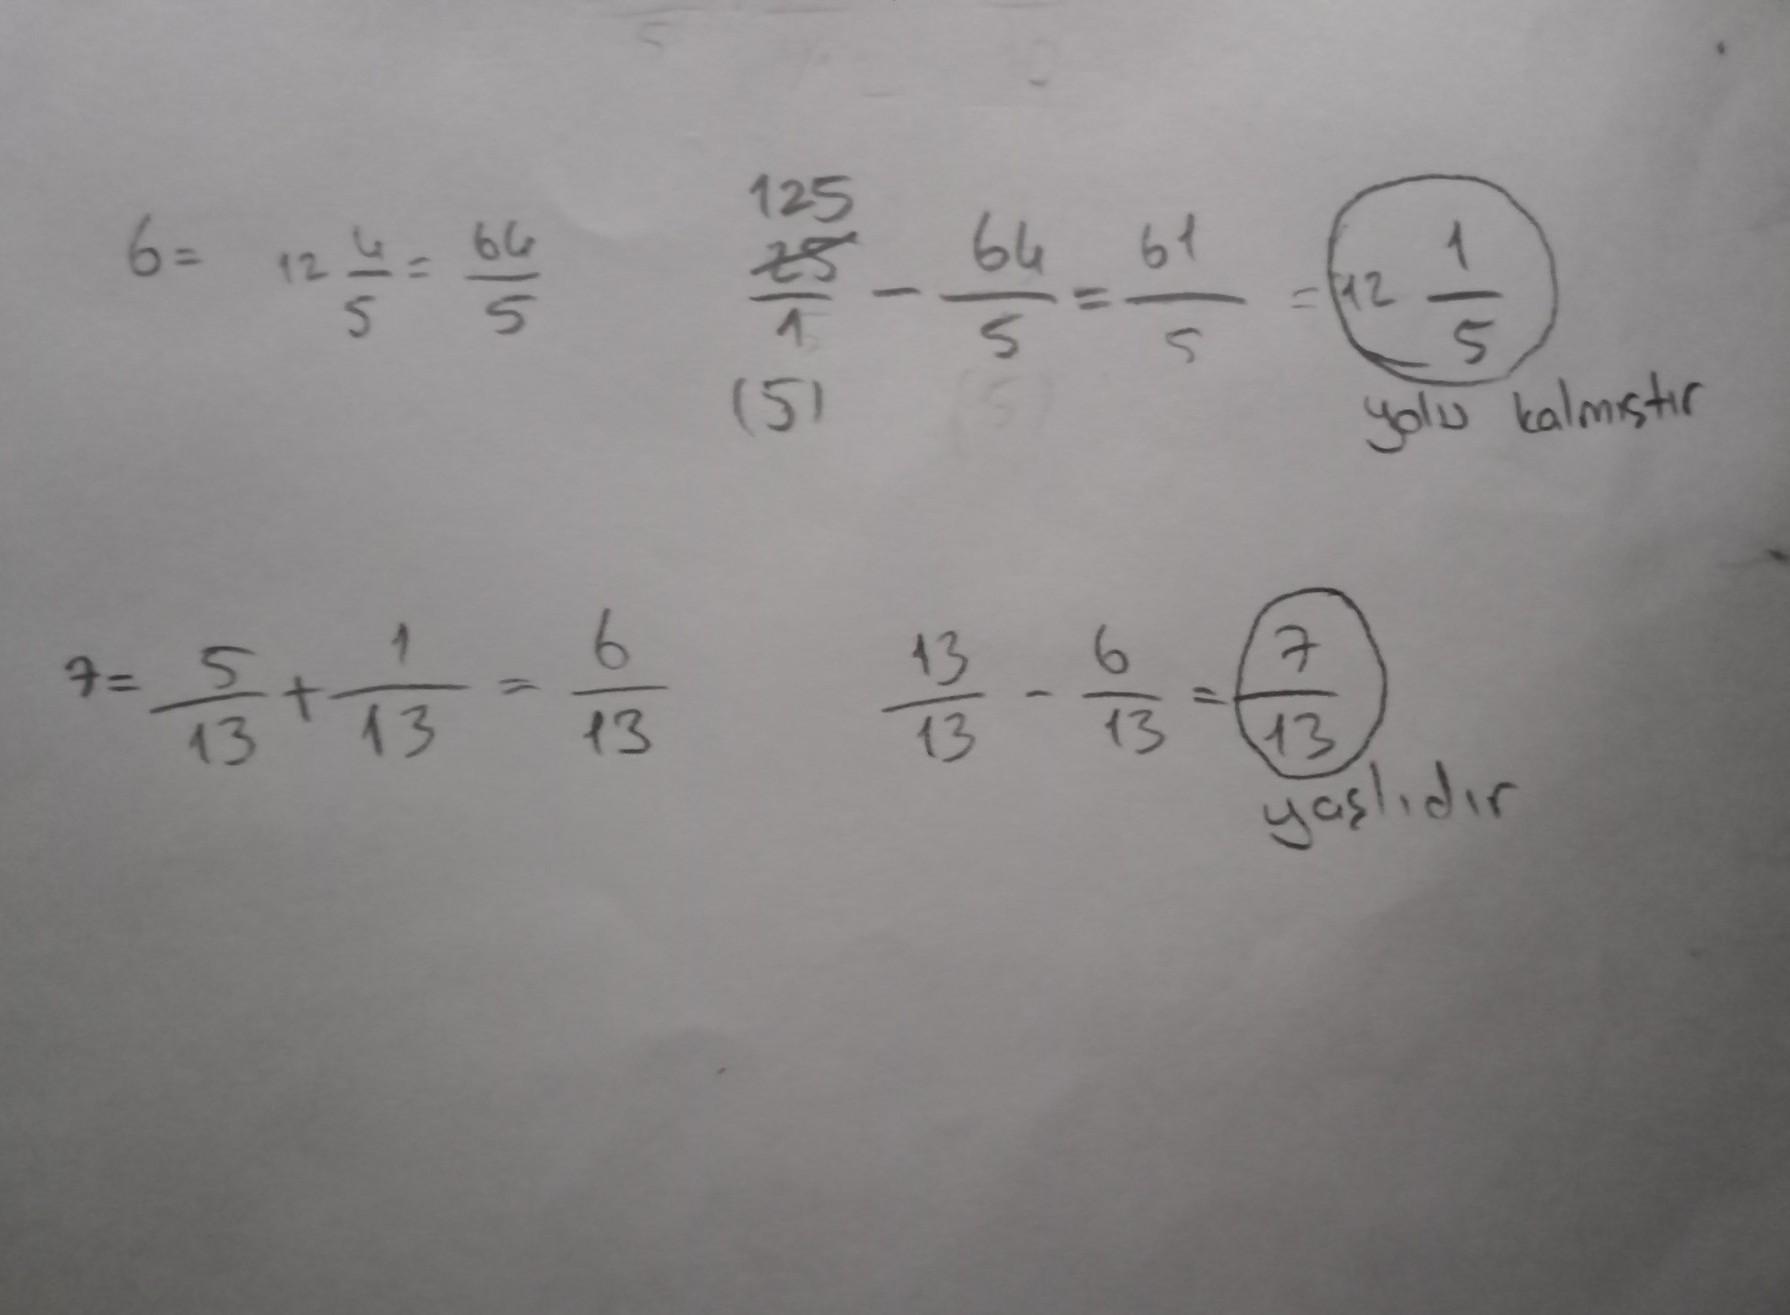 125
6= 12 4/5 = 64/5 25/1 - 64/5 = 61/5 = 12 1/5
(5) (5)
yolu kalmıştır
7= 5/13 + 1/13 = 6/13 13/13 - 6/13 = 7/13
yaşlıdır